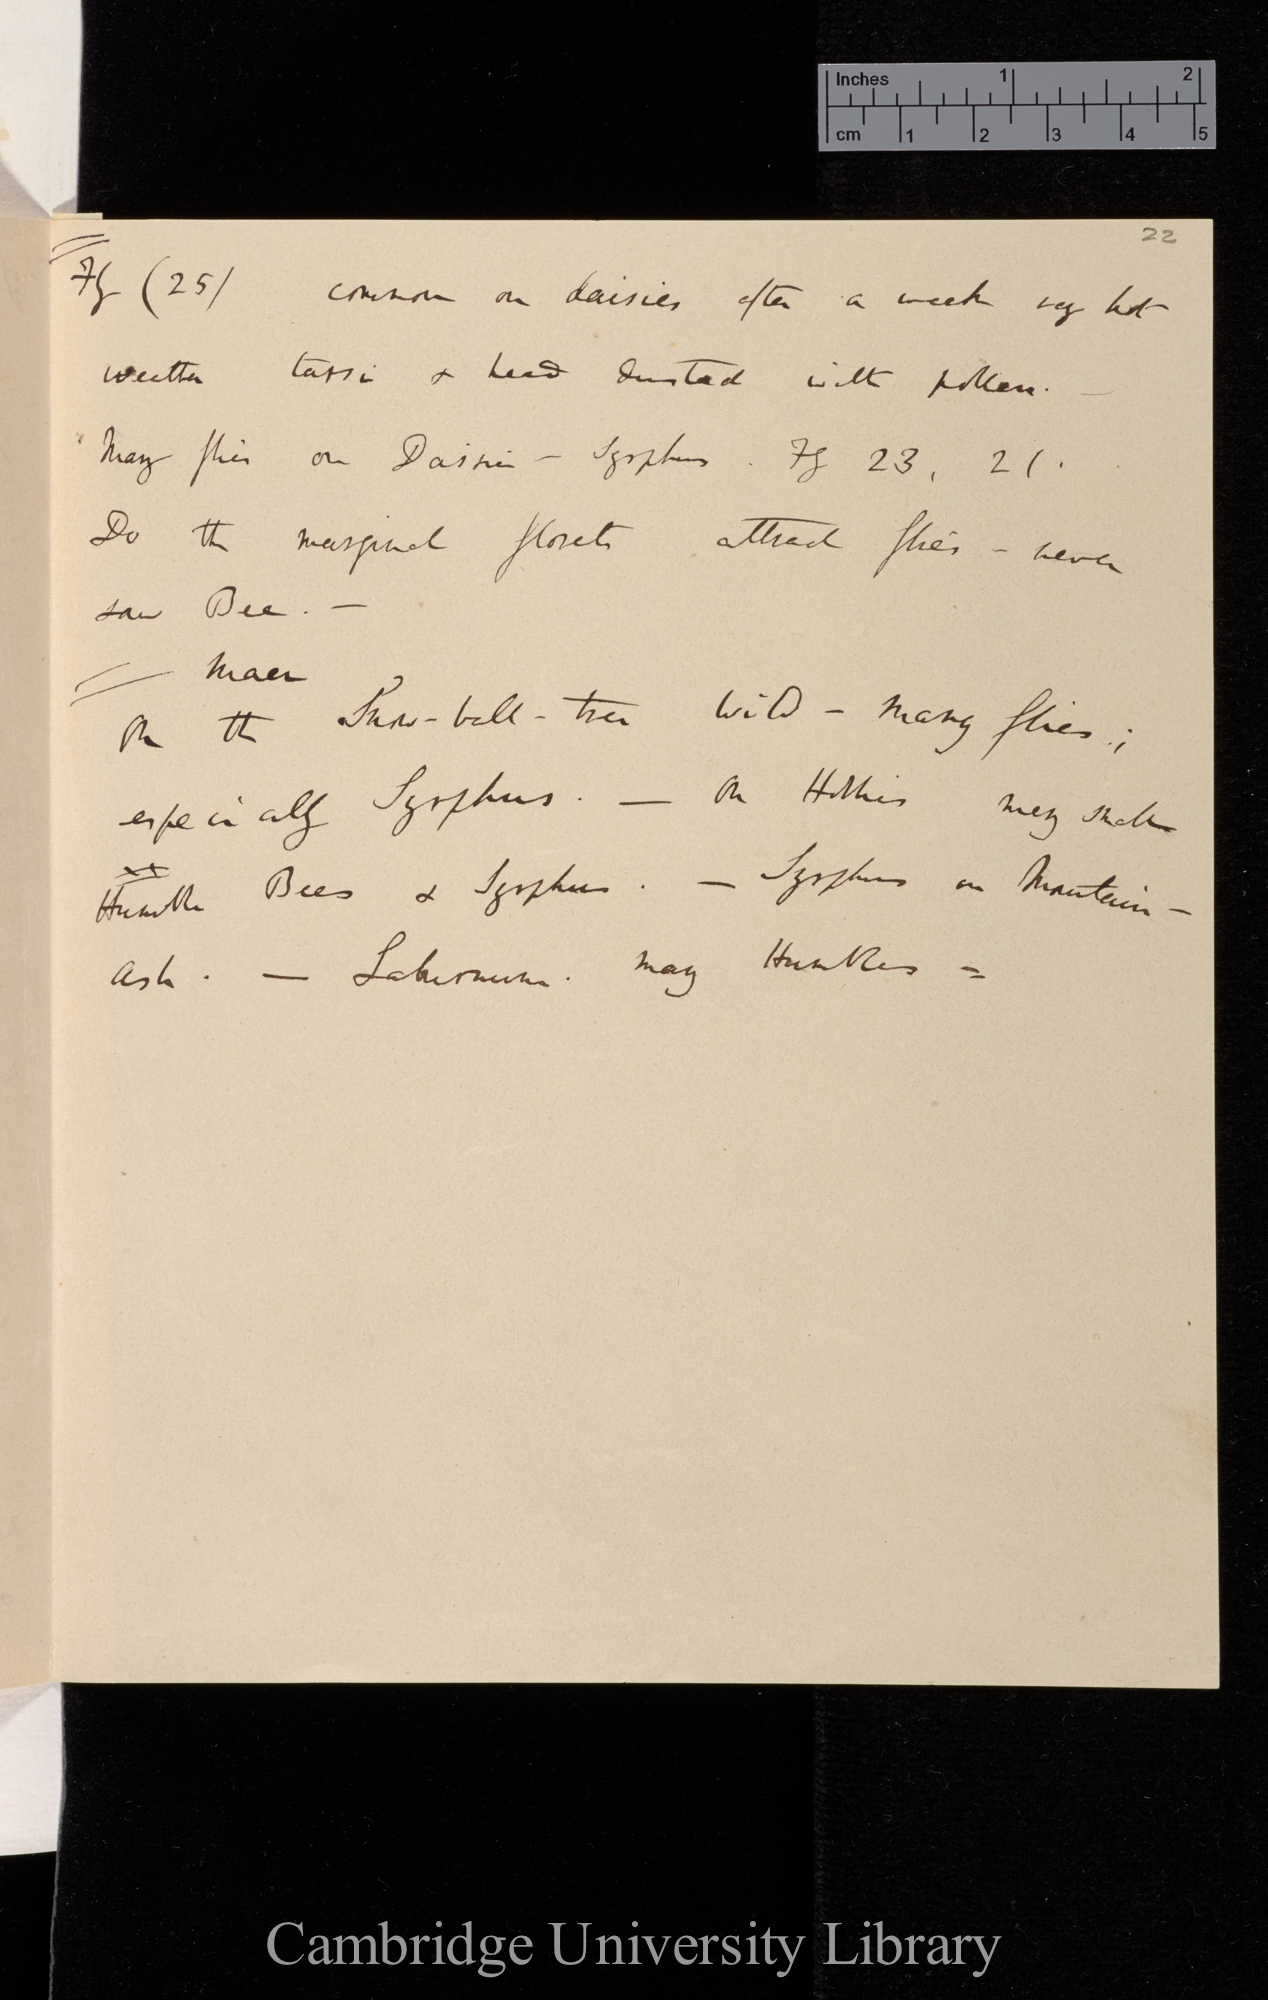 Inches 1 2
cm 1 2 3 4 5
22
Fly (25) common on daisies after a week very hot
weather tarsi & head dusted with pollen. —
Many flies on Daisies – Syrphus. Fly 23, 21.
Do the marginal florets attract flies – never
saw Bee. —
Maer
On the Snow-ball-tree wild – many flies.;
especially Syrphus. — On Hollies many small
Humble Bees & Syrphus. — Syrphus on Mountain –
Ash. — Laburnum. many Humbles =
Cambridge University Library